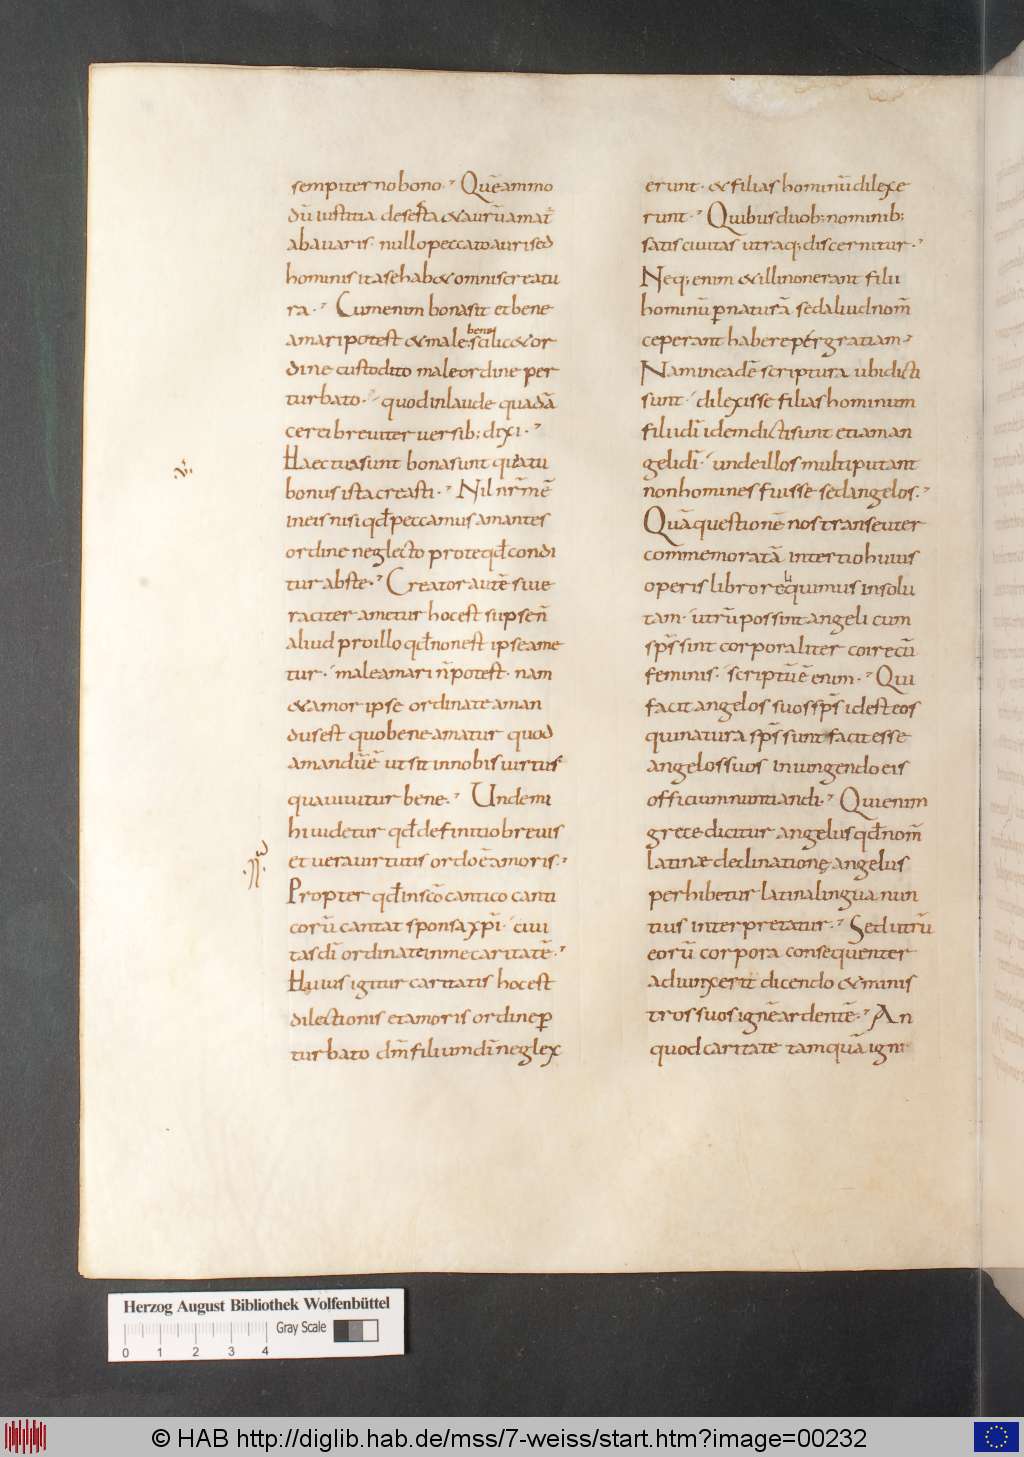 sempiterno bono. Quēammo
dū iustitia deserta & aurū amat̄
ab auaris. nullo peccato auri sed
hominis ita se hab& omnis creatu
ra. Cum enim bona sit et bene
amari potest & male. bene scilic& or
dine custodito male ordine per
turbato. quod in laude quadā
certi breuiter uersib; dixi.
Haec tua sunt bona sunt quia tu
bonus ista creasti. Nil nr̄m ē
in eis nisi qd̄ peccamus amantes
ordine neglecto pro te qd̄ condi
tur abs te. Creator autē si ue
raciter ametur hoc est si ipse n̄
aliud pro illo qd̄ non est ipse ame
tur. male amari n̄ potest. nam
& amor ipse ordinate aman
dus est quo bene amatur quod
amandū ē ut sit in nobis uirtus
qua uiuitur bene. Unde mi
hi uidetur qd̄ definitio breuis
et uera uirtutis ordo ē amoris.
Propter qd̄ in sc̄o cantico canti
corū cantat sponsa xp̄i. ciui
tas dī ordinate in me caritatē.
Huius igitur caritatis hoc est
dilectionis et amoris ordine ꝑ
turbato dm̄ filii um dī neglex
erunt. & filias hominū dilexe
runt. Quibus duob; nominib;
satis ciuitas utraq; discernitur.
Neq; enim & illi non erant filii
hominū ꝑ naturā sed aliud nom̄
ceperant habere per gratiam.
Nam in eadē scriptura ubi dicti
sunt. dilexisse filias hominum
filii dī idem dicti sunt etiam an
geli dī. unde illos multi putant
non homines fuisse sed angelos.
Quā questionē nos transeuter
commemoratā in tertio huius
operis libro reliquimus insolu
tam. utrū possint angeli cum
sp̄s sint corporaliter coire cū
feminis. scriptū ē enim. Qui
facit angelos suos sp̄s id est eos
qui natura sp̄s sunt facit esse
angelos suos iniungendo eis
officium nuntiandi. Qui enim
grece dicitur angelus qd̄ nom̄
latinæ declinationę angelus
perhibetur latina lingua nun
tius interpretatur. Sed utrū
eorū corpora consequenter
adiunxerit dicendo & minis
tros suos ignē ardentē. An
quod caritate tamquā igni
Herzog August Bibliothek Wolfenbüttel
Gray Scale
0 1 2 3 4
© HAB http://diglib.hab.de/mss/7-weiss/start.htm?image=00232